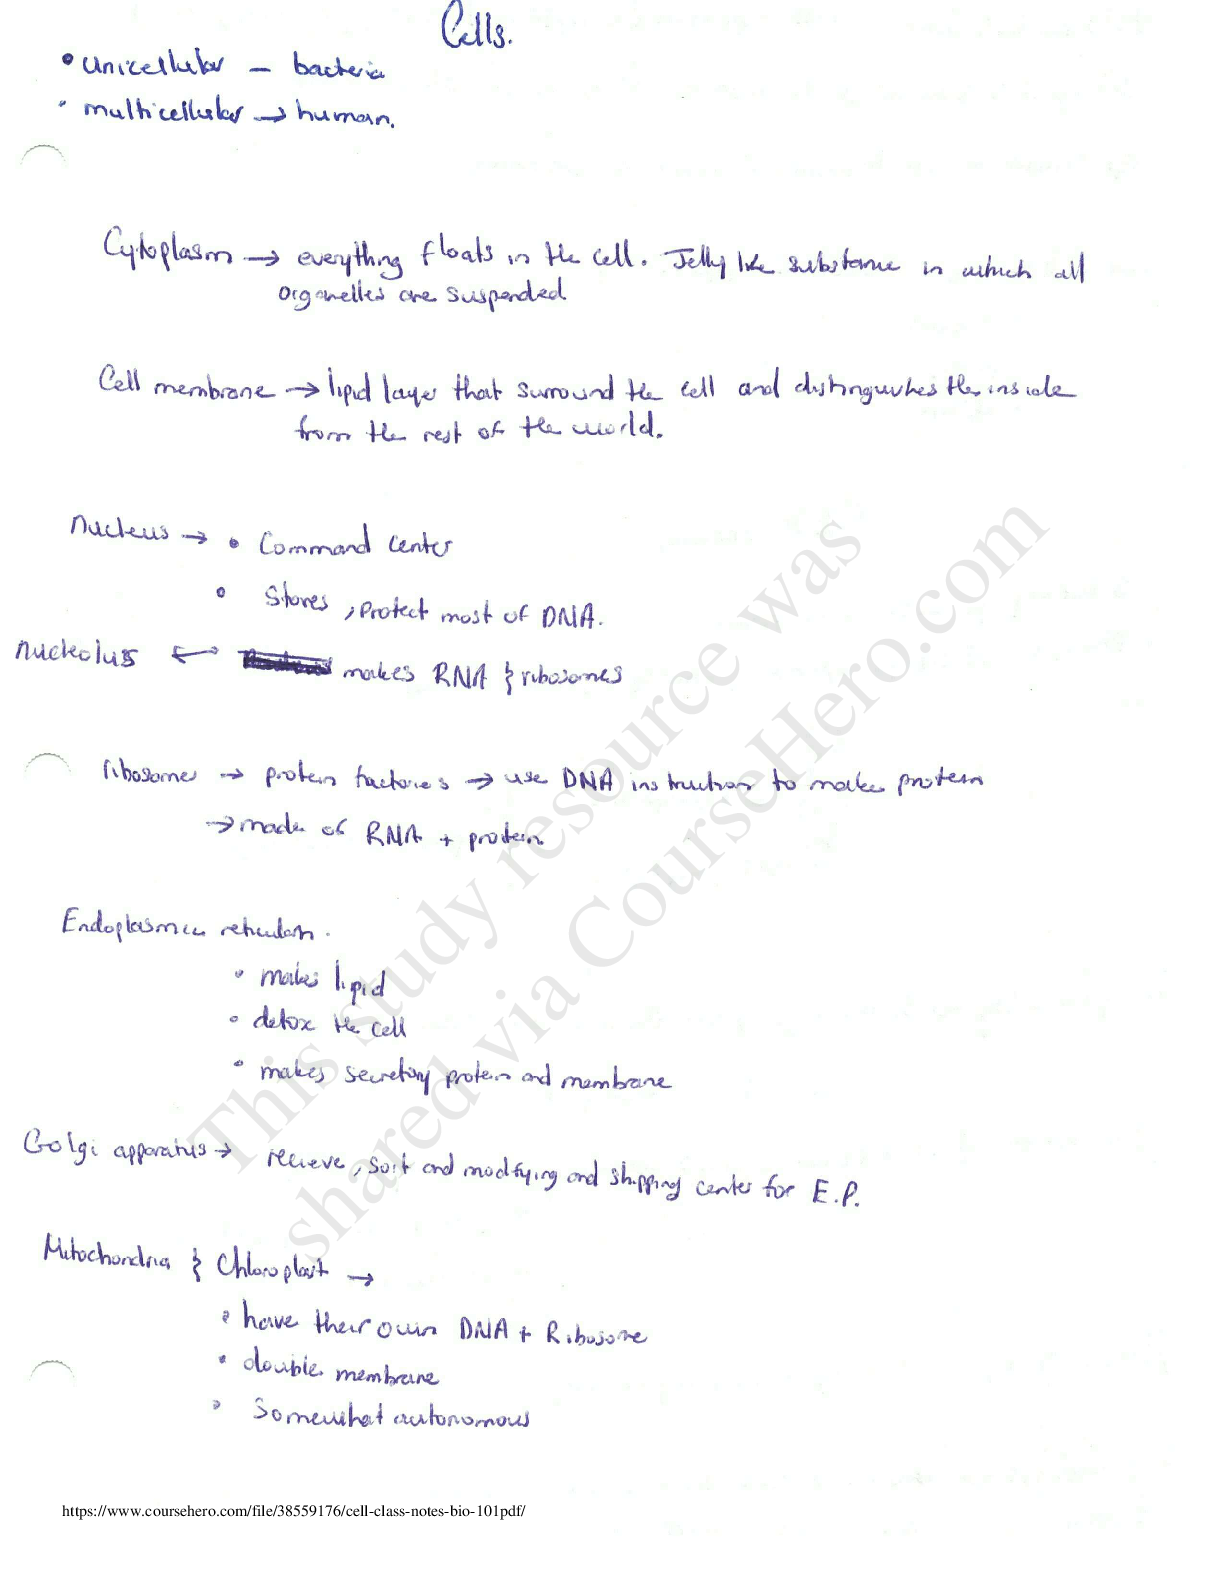 Cells.
• unicellular – bacteria
• multicellular → human.
Cytoplasm → everything floats in the cell. Jelly like substance in which all
organelles are suspended
Cell membrane → lipid layer that surround the cell and distinguishes the inside
from the rest of the world.
Nucleus → • Command center
• Stores, protect most of DNA.
nucleolus ← makes RNA & ribosomes
ribosomes → protein factories → use DNA instruction to make protein
→ made of RNA + protein
Endoplasmic reticulum.
• makes lipid
• detox the cell
• makes secretory protein and membrane
Golgi apparatus → recieve, sort and modifying and shipping center for E.P.
Mitochondria & Chloroplast →
• have their own DNA + Ribosome
• double membrane
• Somewhat autonomous
This study resource was
shared via CourseHero.com
https://www.coursehero.com/file/38559176/cell-class-notes-bio-101pdf/